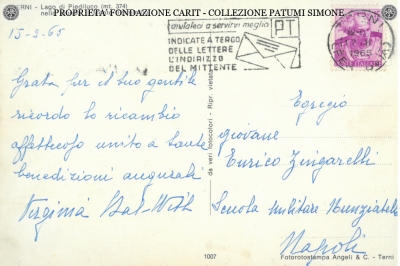 PROPRIETA' FONDAZIONE CARIT - COLLEZIONE PATUMI SIMONE
TERNI - Lago di Piediluco (mt. 374)
aiutateci a servirvi meglio
PT
INDICATE A TERGO
DELLE LETTERE
L'INDIRIZZO
DEL MITTENTE
15-3-65
Grata per il suo gentile
ricordo lo ricambio
affettuoso unito a tante
benedizioni augurali
Virginia
Egregio
giovane
Enrico Zingarelli
Scuola militare Nunziatella
Napoli
da veri fotocolori - Ripr. vietata
1007
Fotorotostampa Angeli & C. - Terni